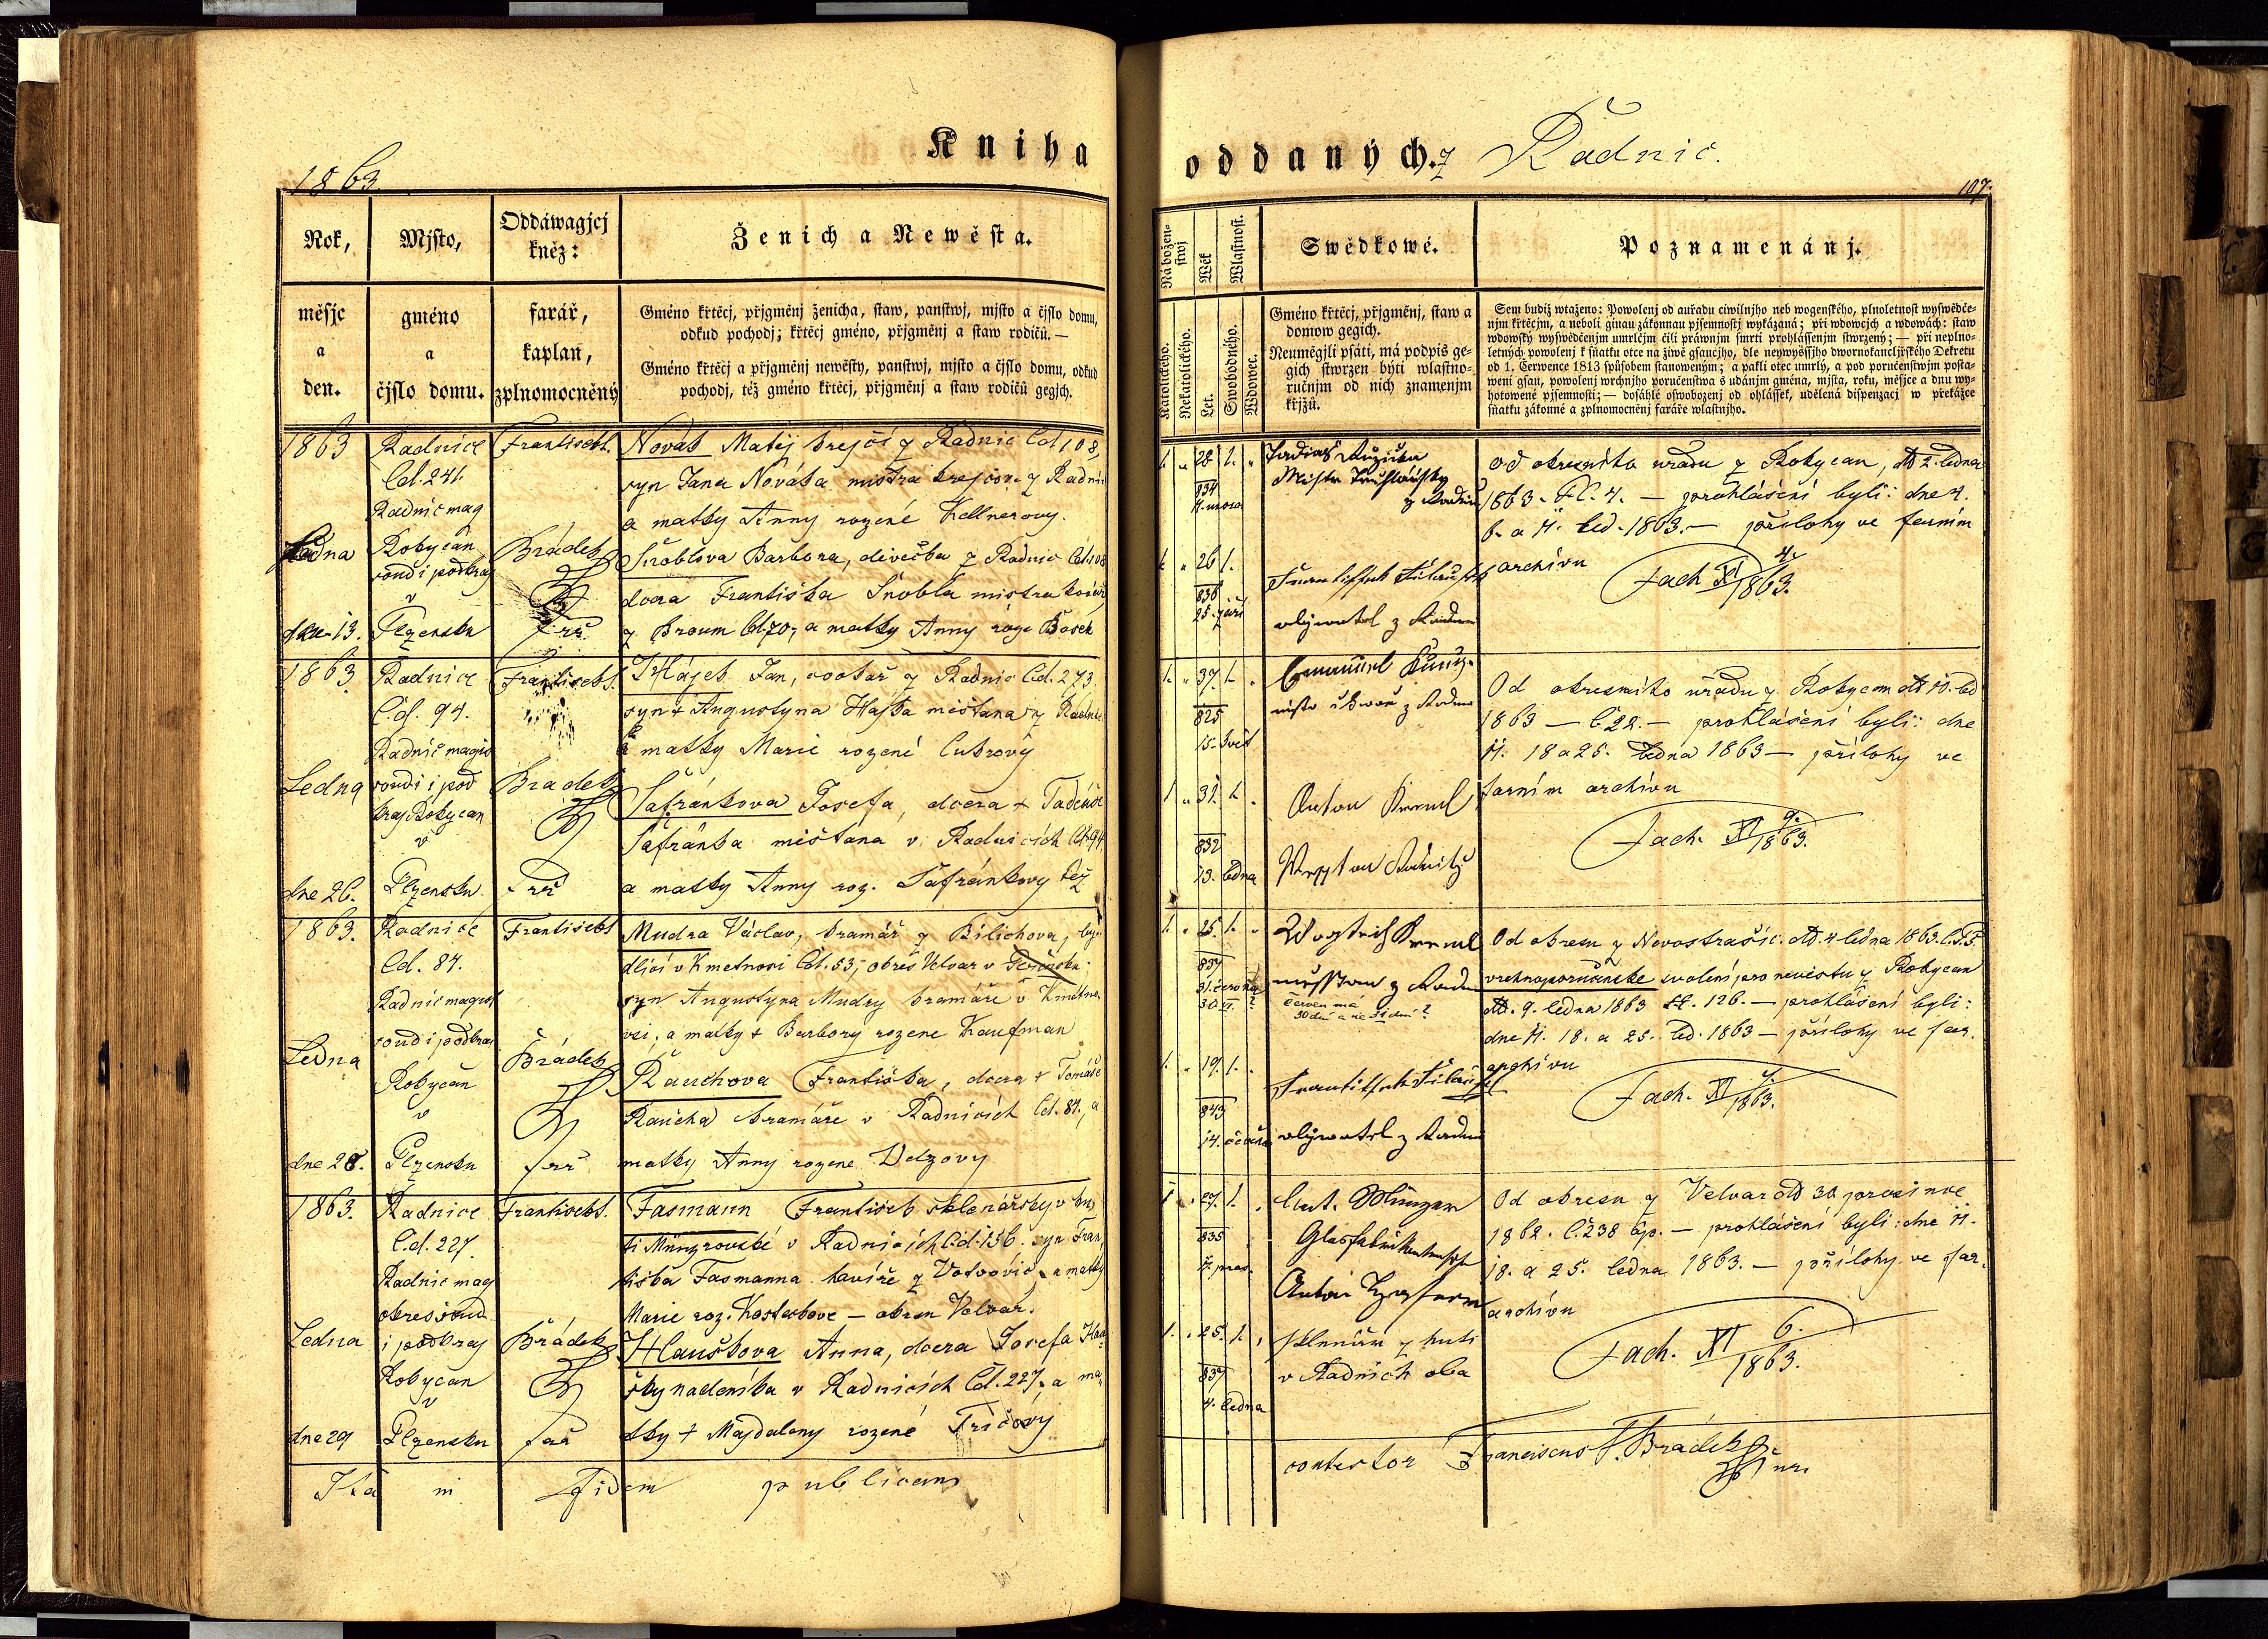 Kniha
oddaných. z Radnic.
1863
107.
Rok,
měsjc
a
den.
Mjsto,
gméno
a
čjslo domu.
Oddáwagjcj
kněz:
farář,
kaplan,
zplnomocněný
Ženich a Newěsta.
Gméno křtěcj, přjgměnj ženicha, staw, panstwj, mjsto a čjslo domu,
odkud pochodj; křtěcj gméno, přjgměnj a staw rodičů. —
Gméno křtěcj a přjgměnj newěsty, panstwj, mjsto a čjslo domu, odkud
pochodj, též gméno křtěcj, přjgměnj a staw rodičů gegjch.
Nábožen-
stwj
Katolického.
Nekatolického.
Wěk
Let.
Wlastnost.
Swobodného.
Wdowec.
Swědkowé.
Gméno křtěcj, přjgměnj, staw a
domow gegich.
Neumělgjli psáti, má podpis ge-
gich stwrzen býti wlastno-
ručnjm od nich znamenjm
křjžů.
Poznamenánj.
Sem budiž wtaženo: Powolenj od auřadu ciwilnjho neb wogenského, plnoletnost wyswědče-
njm křtěcjm, a neboli ginau zákonnau pjsemnostj wykázaná; při wdowcjch a wdowách: staw
wdowský wyswědčenjm umrlčjm čili práwnjm smrti prohlássenjm stwrzený; — při neplno-
letných powolenj k sňatku otce na žiwě gsaucjho, dle neywyssjho dwornokancljřského Dekretu
od 1. Července 1813 spůsobem stanoweným; a pakli otec umrlý, a pod poručenstwjm posta-
weni gsau, powolenj wrchnjho poručenstwa s udánjm gména, mjsta, roku, měsjce a dnu wy-
hotowené pjsemnosti; — dosáhlé oswobozenj od ohlássek, udělená dispenzacj w překážce
sňatku zákonné a zplnomocněnj faráře wlastnjho.
1863
Ledna
dne 13.
Radnice
Čd. 241.
Radnic mag
Rokycan
soud i podkraj
v
Plzensku
František
Brádek
far.
Novák Matěj krejčí z Radnic Čd 108,
syn Jana Nováka mistra krejčov. z Radnic
a matky Anny rozené Kellnerovy.
Šnoblova Barbora, děvečka z Radnic Čd 108
dcera Františka Šnobla mistra kováře
z Broum Čd. 70, a matky Anny roz. Bosek
28
834
26
836
25. září
Mistr Truhlářský
z Radnic
obývatel z Radnic
Od okresního uřadu z Rokycan, dtt 2. ledna
1863. Čl. 4. — prohlášení byli: dne 4.
6. a 11. led. 1863. — přílohy ve farním
archívu
Fach XI 4./1863.
1863.
Ledna
dne 26.
Radnice
Č.d. 94.
Radnic magis
soudi i pod
kraj Rokycan
v
Plzensku
František
Bradek
far
Hájek Jan, cvokař z Radnic Čd. 273
syn + Augustyna Hájka měštana z Radnic
a matky Marie rozené Cukrový
Šafránkova Josefa, dcera + Tadeáše
Šafránka měštana v Radnicích Čd. 94
a matky Anny roz. Šafránkovy též
37.
825
15. květ
31.
832
13. ledna
Anton Kreml
Od okresního uřadu z Rokycan dtt 11. led
1863 — č 22. — prohlášení byli: dne
11. 18 a 25. ledna 1863 — přílohy ve
farním archívu
Fach. XI 9./1863.
1863.
Ledna
dne 28.
Radnice
Čd. 84.
Radnic magist
soud i podkraj
Rokycan
v
Plzensku
František
Brádek
far
Mudra Václav, kramář z Bílichova, by-
dlící v Kmetnovsi Čd. 53, okres Velvar v
syn Augustyna Mudry kramáře v Kmetno
vsi, a matky + Barbory rozene Kaufman
Rauchova Františka, dcera + Tomáše
Raucha kramáře v Radnicích Čd. 84, a
matky Anny rozene Velzovy
25.
837
31. června
30 VI. ?
19.
843
Kreml
z Radnic
červen má
30 dní a ne 31 dní ?
obývatel z Radnic
Od okresu z Novostrašic. dtt. 4 ledna 1863.
vrchnoporučnické svolení pro nevěstu z Rokycan
dtt. 9. ledna 1863 čl. 126. — prohlášení byli:
dne 11. 18. a 25. led. 1863 — přílohy ve far.
archívu
Fach. XI /1863.
1863.
Ledna
dne 29
Radnice
Č.d. 227.
Radnic mag
okres soud
i podkraj
Rokycan
v
Plzensku
František
Brádek
far
Fasmann František sklenářský v hu
ti Münzrovské v Radnicích Čd. 156. syn Fran,
tiška Fasmanna havíře z Votvovic, a matky
Marie roz. Kosterkove — okresu Velvar.
Hauškova Anna, dcera Josefa Hau
šky nadeníka v Radnicích Čd. 227, a ma,
tky + Majdaleny rozené Tříčový
27.
835
25.
837
4. ledna
Ant. Münzer
Glasfabrikant
sklenáři z huti
v Radnicích oba
Od okresu z Velvar dtt 30 prosince
1862. č. 238 — prohlášení byli: dne 11.
18. a 25. ledna 1863. — přílohy ve far.
archívu
Fach. XI 6./1863.
Ita in Fidem publicam
contestor Franciscus F. Brádek